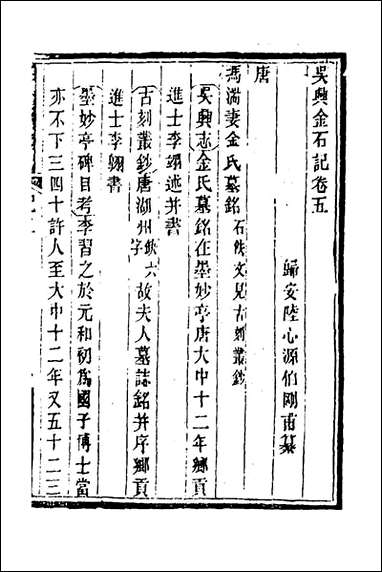 吳興金石記卷五
歸安陸心源伯剛甫纂
唐
馮湍妻金氏墓銘石佚文見古刻叢鈔
吳興志金氏墓銘在墨妙亭唐大中十二年鄉貢
進士李翊述并書
古刻叢鈔唐湖州缺六字故夫人墓誌銘并序鄉貢
進士李翊書
墨妙亭碑目考李習之於元和初爲國子博士當
亦不下三四十許人至大中十二年又五十二三